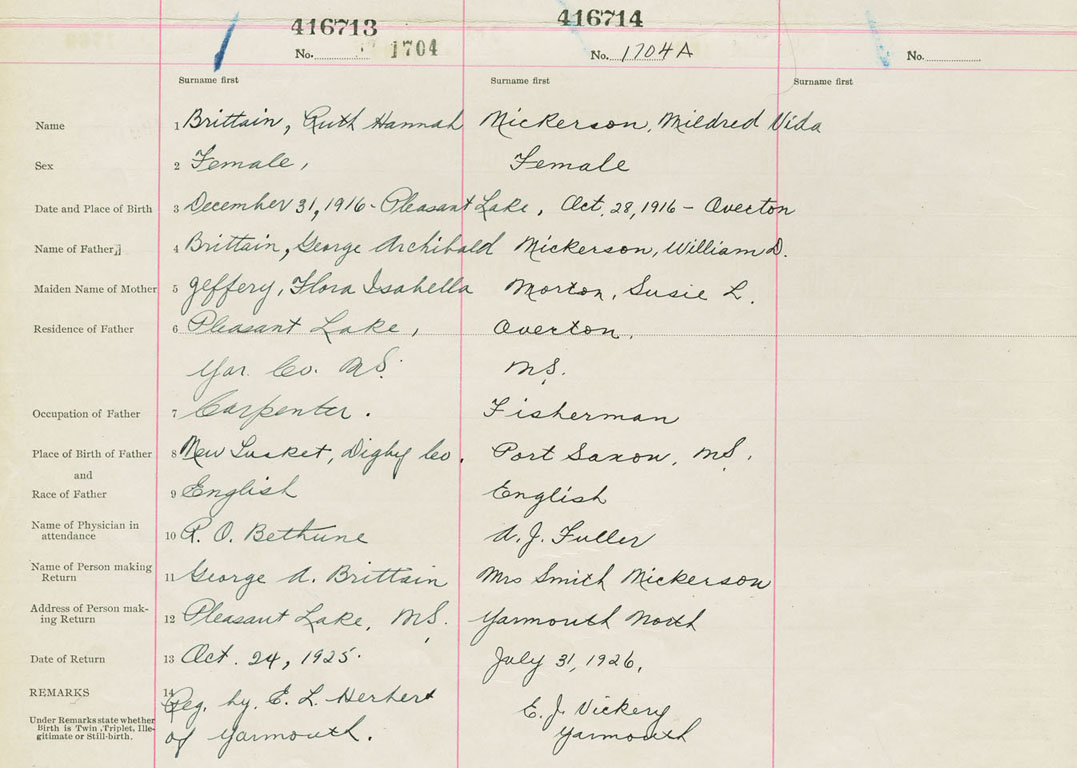 416713 416714
No. 1704 No. 1704A No.
Surname first Surname first Surname first
Name 1 Brittain, Ruth Hannah Nickerson, Mildred Vida
Sex 2 Female, Female
Date and Place of Birth 3 December 31, 1916 - Pleasant Lake, Oct. 28, 1916 - Overton
Name of Father 4 Brittain, George Archibald Nickerson, William D.
Maiden Name of Mother 5 Jeffery, Flora Isabella Morton, Susie L.
Residence of Father 6 Pleasant Lake, Overton,
Yar. Co. N.S. N.S.
Occupation of Father 7 Carpenter. Fisherman
Place of Birth of Father 8 New Tusket, Digby Co. Port Saxon, N.S.
and
Race of Father 9 English English
Name of Physician in
attendance 10 R. O. Bethune A. J. Fuller
Name of Person making
Return 11 George A. Brittain Mrs Smith Nickerson
Address of Person mak-
ing Return 12 Pleasant Lake, N.S. Yarmouth North
Date of Return 13 Oct. 24, 1925. July 31, 1926.
REMARKS 14 Reg. by. E. L. Herbert E. J. Vickery
Under Remarks state whether
Birth is Twin, Triplet, Ille-
gitimate or Still-birth. of Yarmouth. Yarmouth